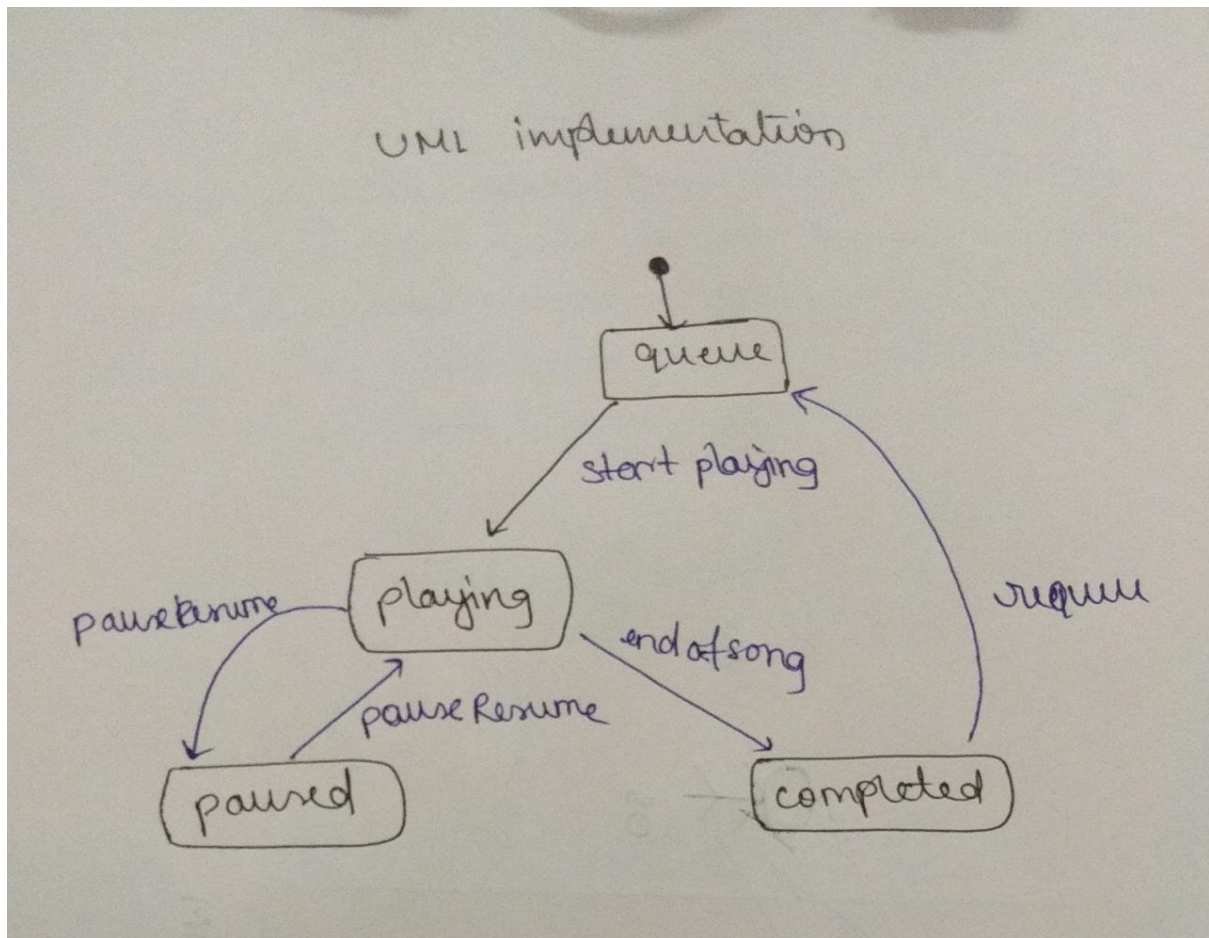 UML implementation
queue
start playing
playing
pauseResume
endofsong
requeue
pauseResume
paused
completed